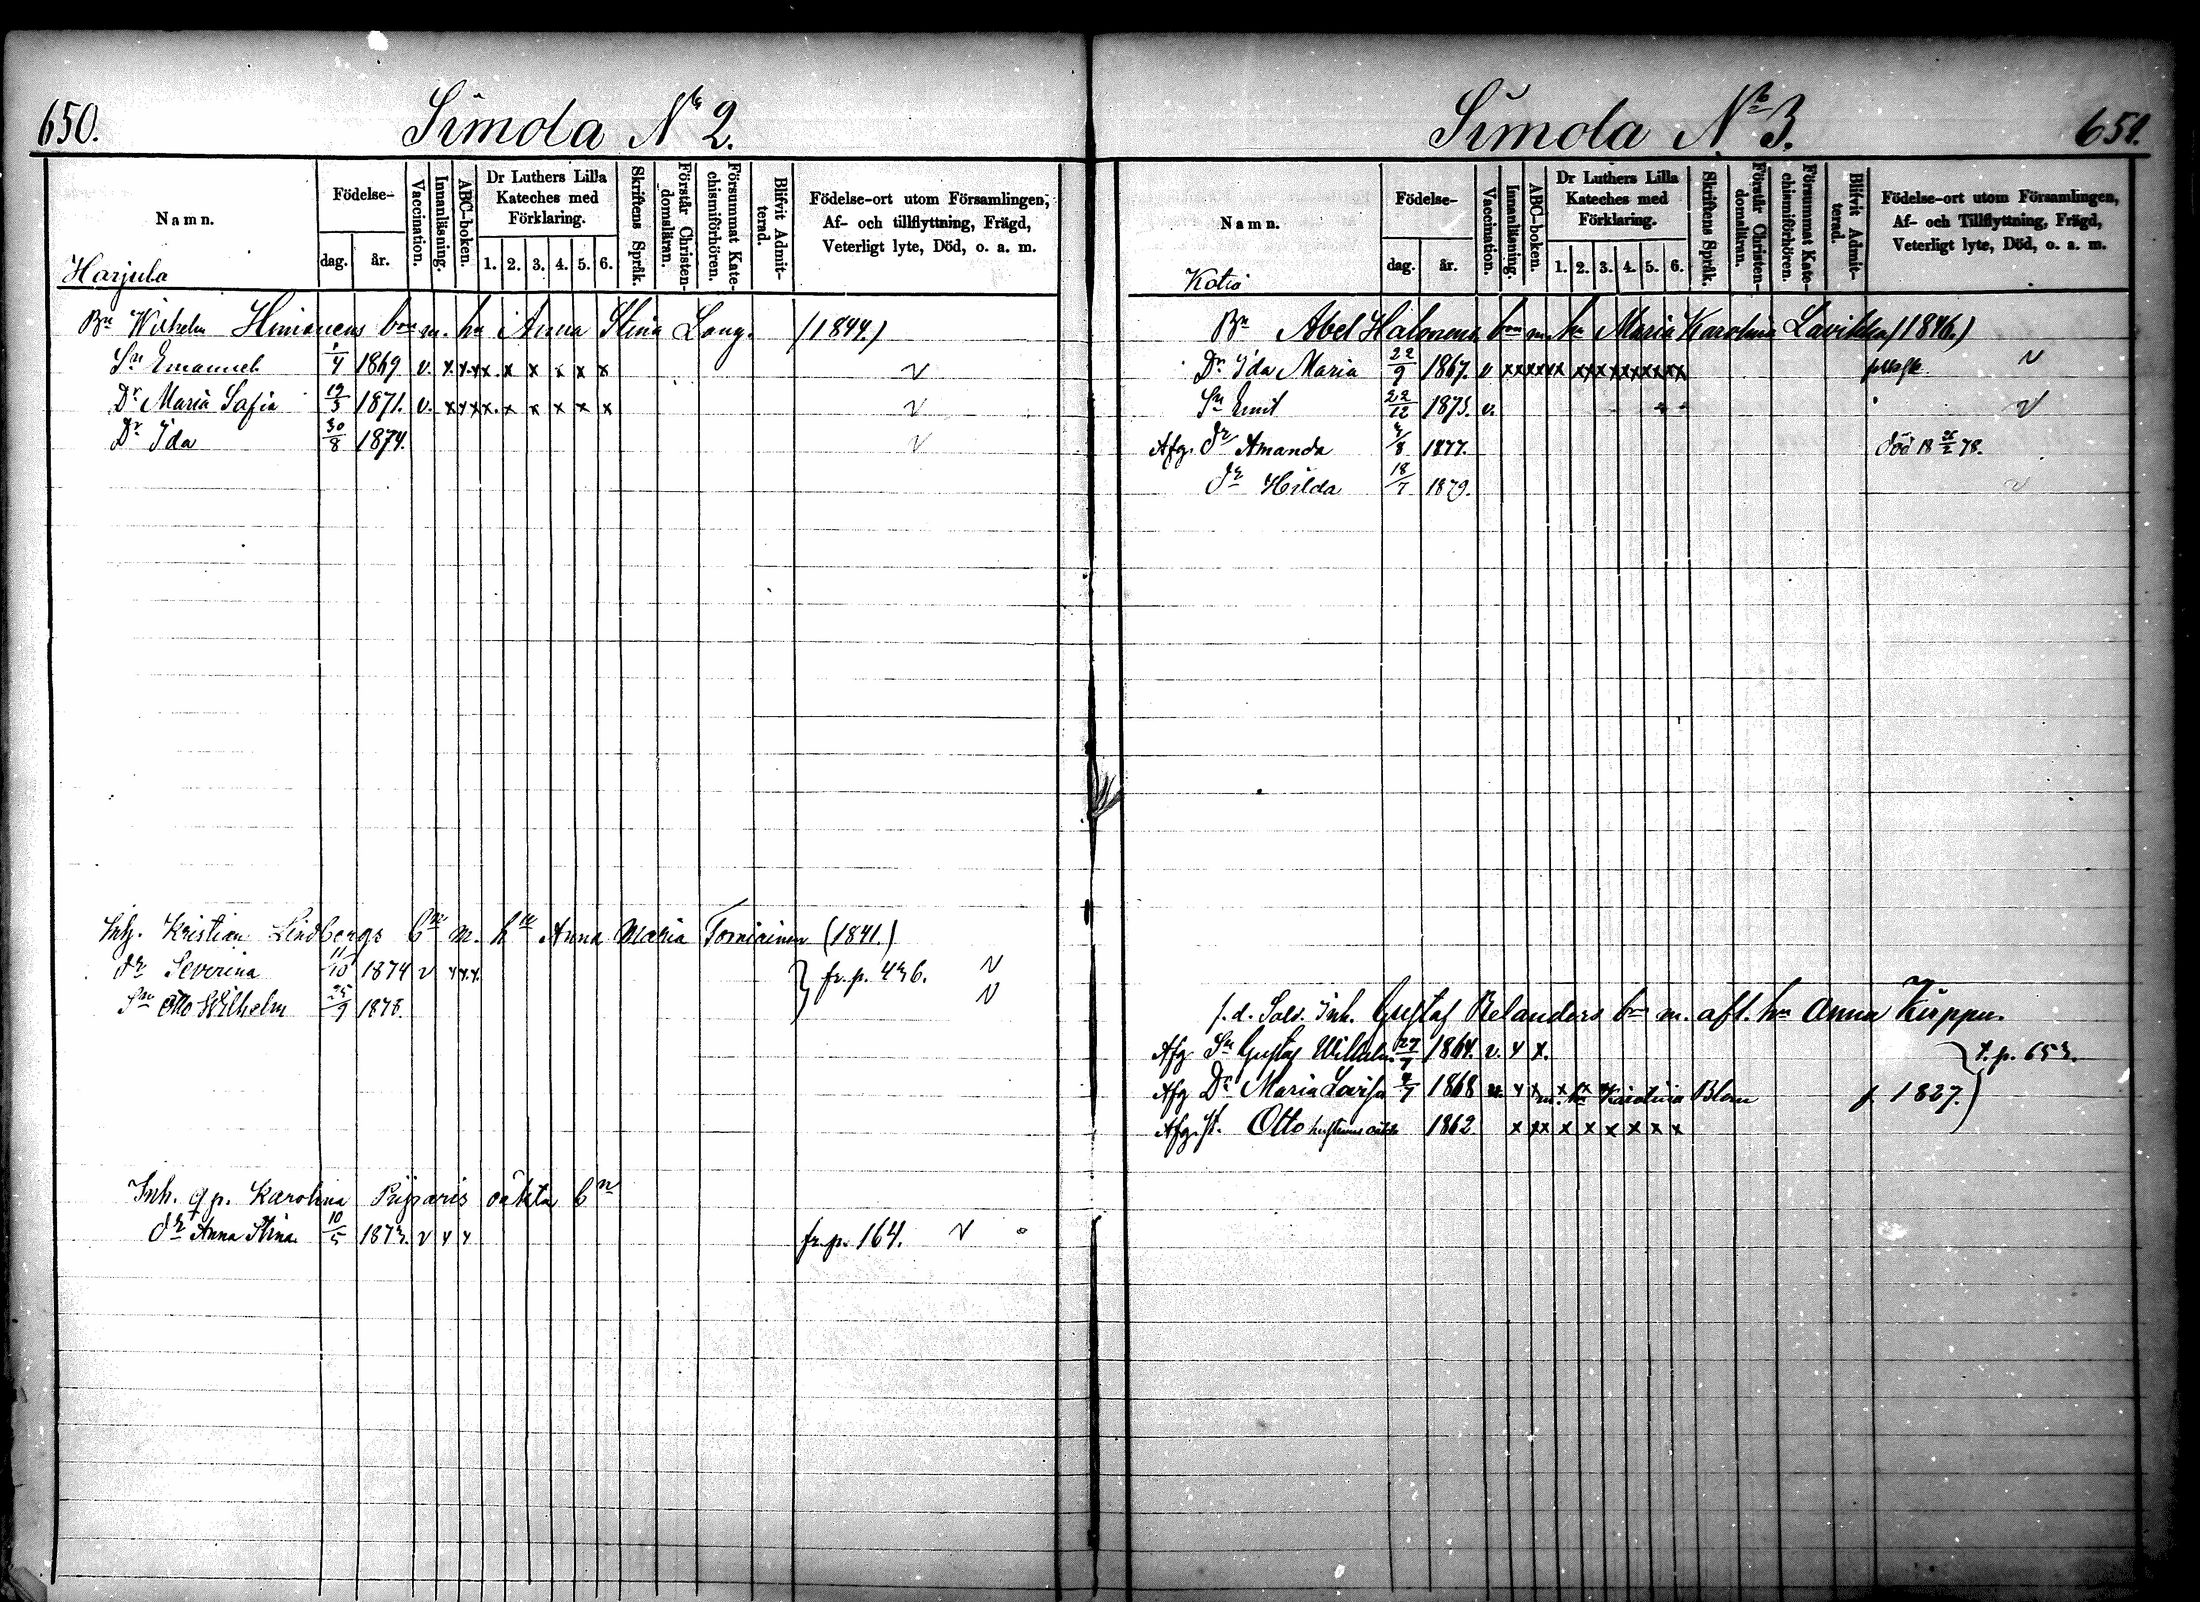 650.
Simola No 2.
Namn.
Födelse-
dag.
år.
Vaccination.
Innanläsning.
ABC-boken.
Dr Luthers Lilla Kateches med Förklaring.
1. 2. 3. 4. 5. 6.
Skriftens Språk.
Förstår Christendomsläran.
Försummat Katechismiförhören.
Blifvit Admitterad.
Födelse-ort utom Församlingen,
Af- och tillflyttning, Frägd,
Veterligt lyte, Död, o. a. m.
Harjula
Bn Wilhelm bn m. hu Anna Stina Lang. (1844.)
Sn Emanuel 1/4 1869 v. x x x x. x x x x x v
Dr Maria Sofia 1871. v. x x x x. x x x x x v
Dr Ida 30/8 1874. v
Inh. Kristian Lindbergs bn m. hu Anna Maria Torniainen (1841.)
dr Severina 11/10 1874 v x x x. } fr. p. 436. v
Sn Otto Wilhelm 25/9 1878. v
Inh. qp. Karolina oäkta bn
dr Anna Stina. 10/5 1873. v x x fr. p. 164. v
Simola No 3.
651.
Namn.
Födelse-
dag.
år.
Vaccination.
Innanläsning.
ABC-boken.
Dr Luthers Lilla Kateches med Förklaring.
1. 2. 3. 4. 5. 6.
Skriftens Språk.
Förstår Christendomsläran.
Försummat Katechismiförhören.
Blifvit Admitterad.
Födelse-ort utom Församlingen,
Af- och Tillflyttning, Frägd,
Veterligt lyte, Död, o. a. m.
Kotio
Bn Abel Halonens bn m. hu Maria Karolina Lavikka (1846.)
Dr Ida Maria 22/9 1867. v xxxxxx xxxxxxxxx v
Sn Emil 22/12 1875. v. v
Afg. dr Amanda 1877. död 18 78.
dr Hilda 18/7 1879. v
f. d. Sold. Inh. Gustaf Relanders bn m. afl. hu Anna Kuppu.
Afg Sn Gustaf Wilhelm 27/7 1864. v. x x. } t. p. 653.
Afg Dr Maria Lovisa 1868 v. x x x x m. hu Karolina Blom f 1827.
Afg. st. Otto hustruns oäkta 1862 x x x x x x x x x